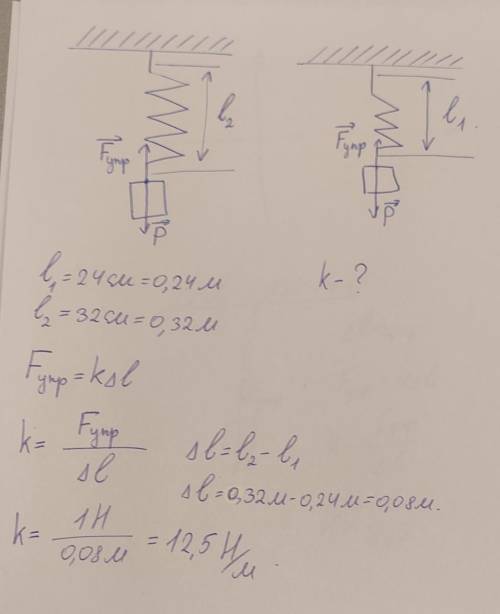 F⃗упр l₂ P⃗
F⃗упр l₁. P⃗
l₁ = 24см = 0,24м
k - ?
l₂ = 32см = 0,32м
Fупр = kΔl
k = Fупр / Δl
Δl = l₂ - l₁
Δl = 0,32м - 0,24м = 0,08м.
k = 1Н / 0,08м = 12,5 Н/м.